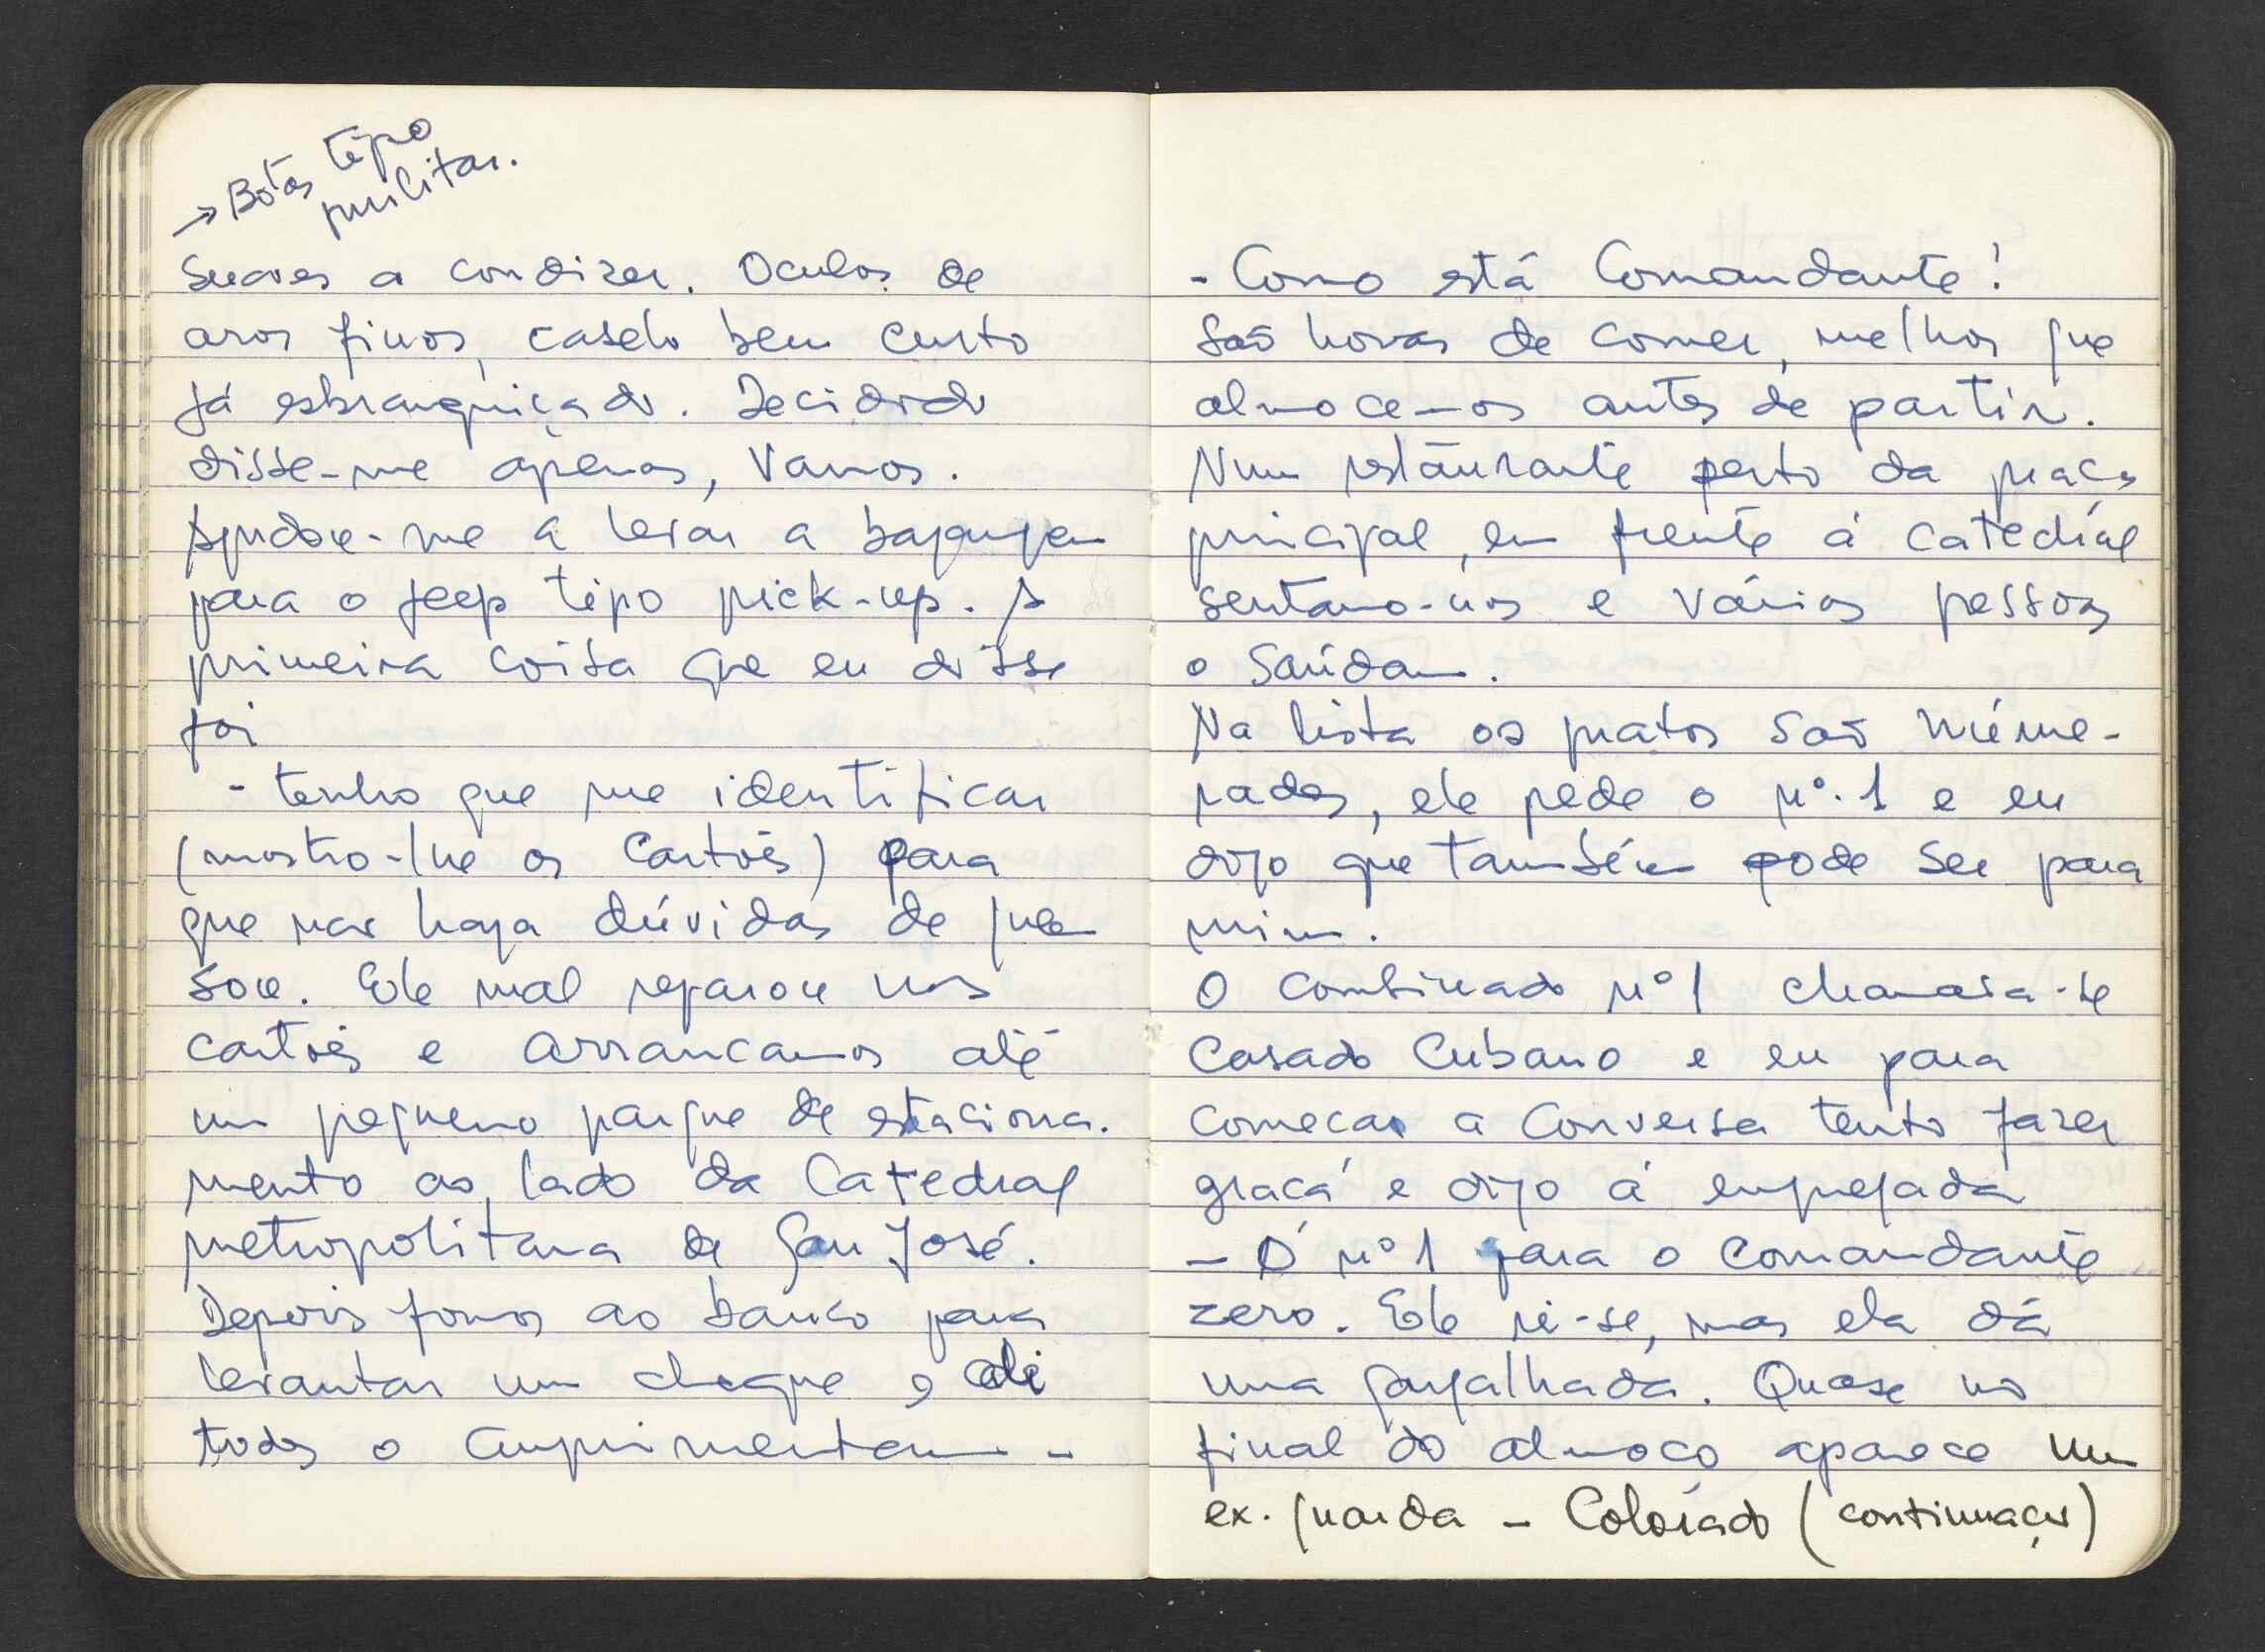 → Botas tipo
militar.
suaves a condizer. Oculos de
aros finos, caselo bem curto
já esbranquiçado. Decidido
disse-me apenas, Vamos.
Ajudou-me a levar a bagagem
para o jeep tipo pick-up. A
primeira coisa que eu disse
foi
- tenho que me identificar
(mostro-lhe os cartões) para
que não haja dúvidas de quem
sou. Ele mal reparou nos
cartões e arrancamos até
um pequeno parque de estaciona-
mento ao lado da Catedral
metropolitana de San José.
Depois fomos ao banco para
levantar um cheque e ali
todos o cumprimentam -
- Como está Comandante!
São horas de comer, melhor que
almocemos antes de partir.
Num restaurante perto da praça
principal, em frente á catedral
sentamo-nos e várias pessoas
o saúdam.
Na lista os pratos são núme-
rados, ele pede o nº. 1 e eu
digo que também pode ser para
mim.
O combinado nº 1 chamava-se
Casado Cubano e eu para
começar a conversa tento fazer
graça e digo á empregada
- O nº 1 para o comandante
zero. Ele ri-se, mas ela dá
uma gargalhada. Quase no
final do almoço aparece um
ex. guarda - Colorado (continuação)